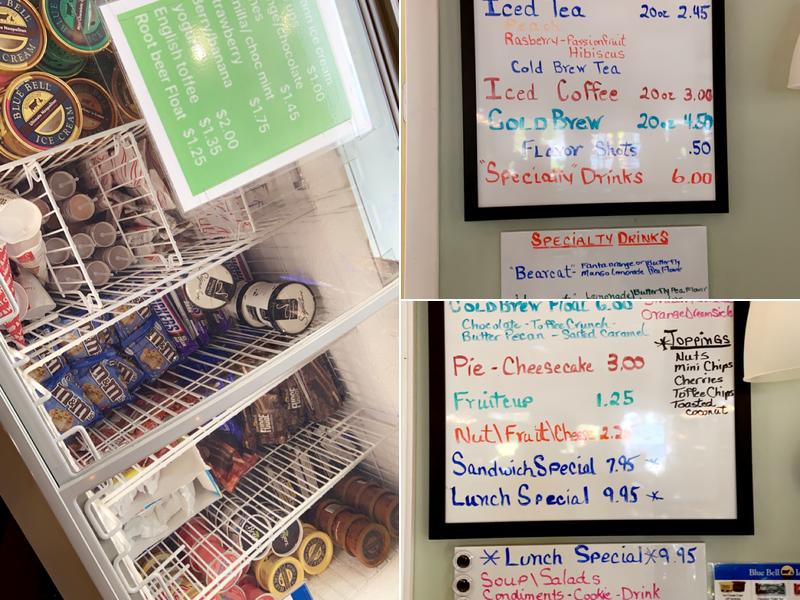 BLUE BELL
ICE CREAM
BLUE BELL
ICE CREAM
$1.00
$1.45
choc mint $1.75
$2.00
English toffee $1.35
Root beer Float $1.25
M&M's
M&M's
Iced Tea 20oz 2.45
Peach
Rasberry-Passionfruit
Hibiscus
Cold Brew Tea
Iced Coffee 20oz 3.00
Cold Brew 20oz 4.50
Flavor Shots .50
"Specialty" Drinks 6.00
Specialty Drinks
"Bearcat" - Fanta orange or Butterfly
Mango Lemonade Pea Flavor
Lemonade/Butterfly Pea Flavor
Cold Brew Float 6.00
Chocolate - Toffee Crunch -
Butter Pecan - Salted Caramel
Orange Dream Sicle
Pie - Cheesecake 3.00
Fruitcup 1.25
Nut\Fruit\Cheese
Sandwich Special 7.95 *
Lunch Special 9.95 *
*Toppings
Nuts
Mini Chips
Cherries
Toffee Chips
Toasted
coconut
*Lunch Special* 9.95
Soup\Salads
Condiments - Cookie - Drink
Blue Bell